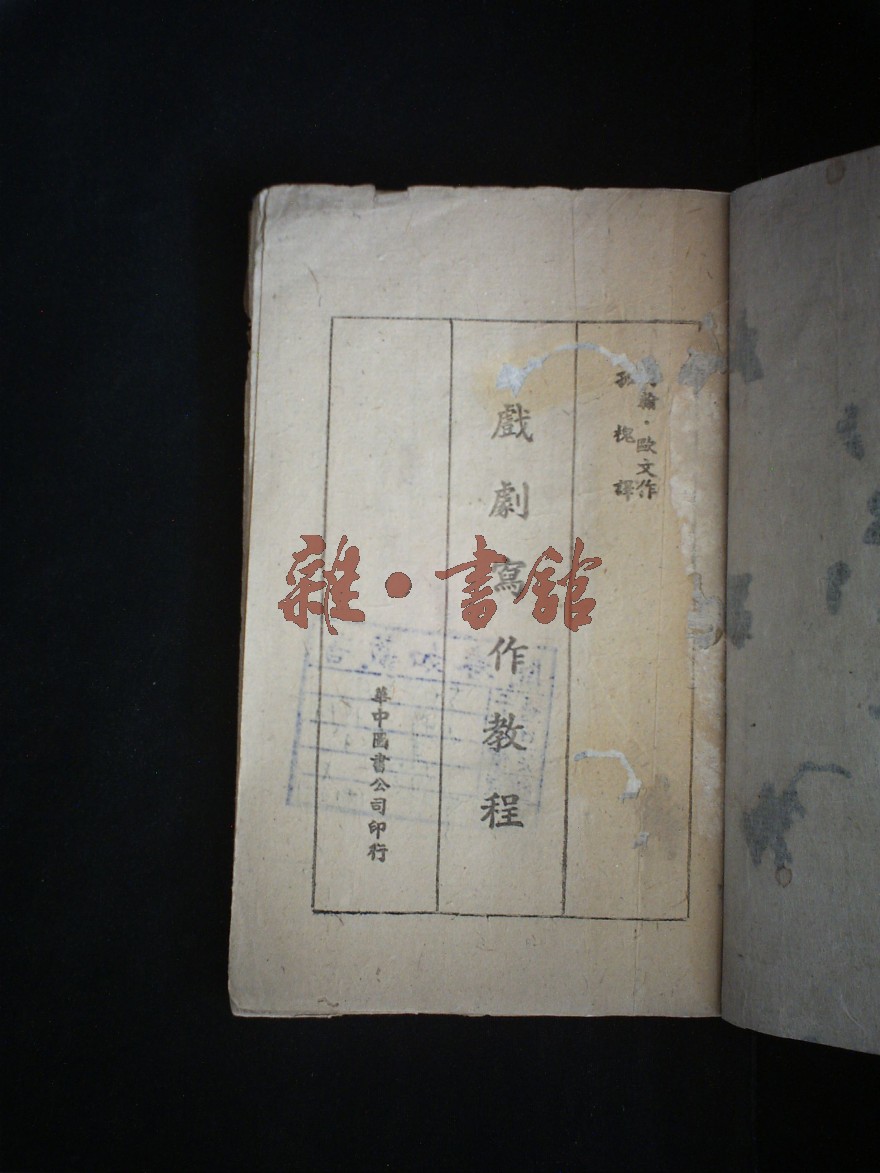 翰·歐文作
孤槐譯
戲劇寫作教程
華中圖書公司印行
雜·書館